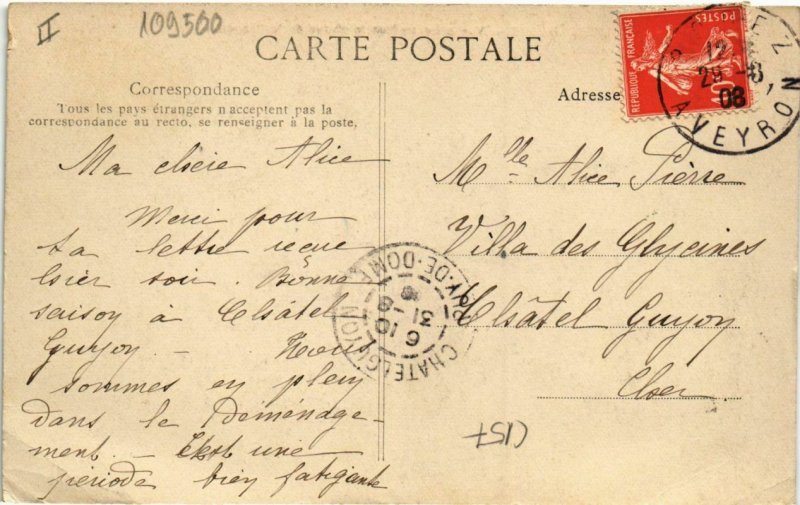 109500
CARTE POSTALE
Correspondance
Tous les pays étrangers n'acceptent pas la
correspondance au recto, se renseigner à la poste.
Adresse
REPUBLIQUE FRANÇAISE
POSTES
12
29 -8
08
AVEYRON
Ma chère Alice
Merci pour
ta lettre reçue
hier soir. Bonne
saison à Châtel
Guyon – Nous
sommes en plein
dans le Déménage-
ment – C'est une
période bien fatigante
Mlle Alice Pierre
Villa des Glycines
Châtel Guyon
Cher
CHATELGUYON
PUY-DE-DOME
6 10
31 -8
C157